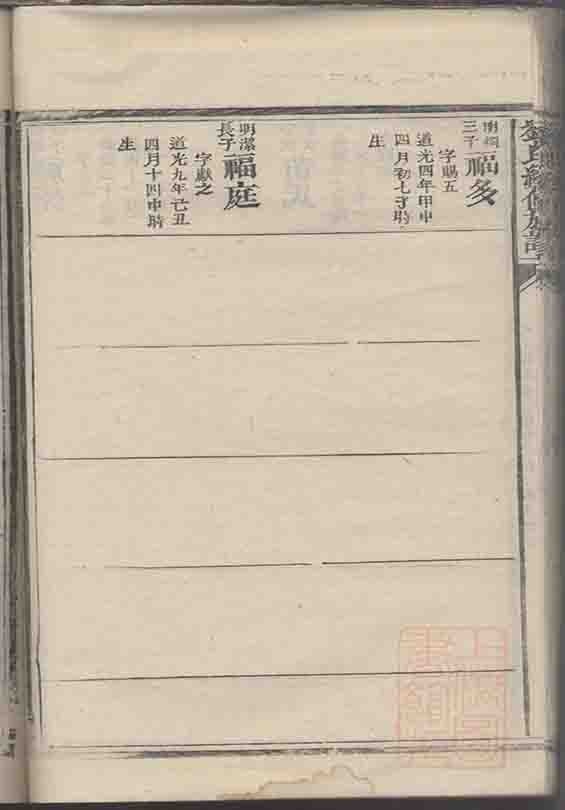 三子
福多
字賜五
道光四年甲申
四月初七子時
生
明潔
長子
福庭
字獻之
道光九年己丑
四月十四申時
生